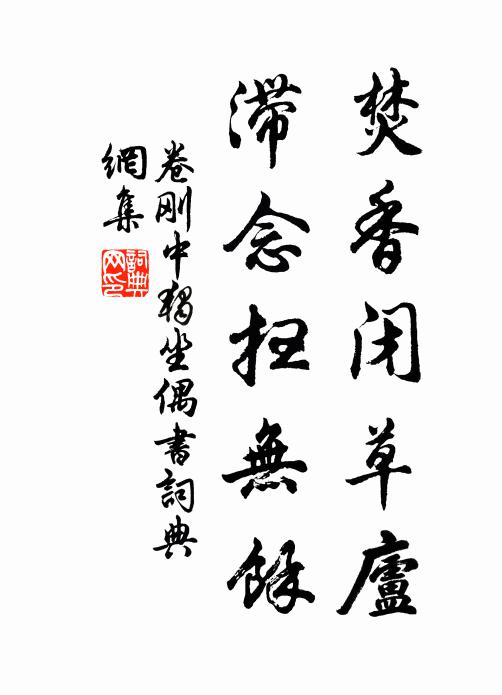 焚香闭草廬
滞念扫無餘
卷刚中獨坐偶書詞典
網集
詞典
网印